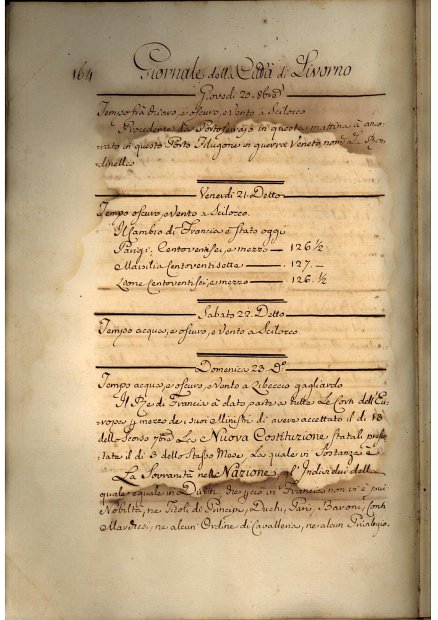 164 Giornale della Città di Livorno
Giovedì 20. 8bre
Tempo frà chiaro, e oscuro, e Vento a Scilocco
Procedente da Portoferrajo in questa mattina à anco-
rato in questo Porto Brigone in guerra Veneto, nom.
Venerdì 21. Detto
Tempo oscuro, e Vento a Scilocco.
Il Cambio di Francia è stato oggi
Parigi Centoventisei, e mezzo — 126 ½
Marsilia Centoventisette — 127. —
Lione Centoventisei, e mezzo — 126. ½
Sabato 22. Detto
Tempo acqua, e oscuro, e Vento a Scilocco
Domenica 23. Do.
Tempo acqua, e oscuro, e Vento a Libeccio gagliardo
Il Re di Francia à dato parte a tutte Le Corti dell'Eu-
ropa p mezzo de suoi Ministri di avere accettato il dì 13
dello Scorso 7bre La Nuova Costituzione statali presen-
tata il dì 3 dello Stesso Mese, La quale in Sostanza è
La Sovranità nella Nazione, gl'Individui della
quale equale in Diritti, che in Francia non vi è più
Nobiltà, ne Titoli di Principi, Duchi, Pari, Baroni, Conti
Marchesi, ne alcun Ordine di Cavalleria, ne alcun Privilegio.